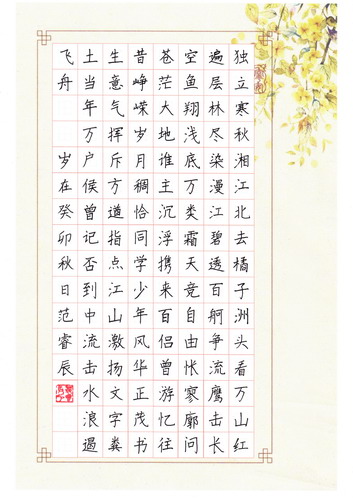 独立寒秋湘江北去橘子洲头看万山红
遍层林尽染漫江碧透百舸争流鹰击长
空鱼翔浅底万类霜天竞自由怅寥廓问
苍茫大地谁主沉浮携来百侣曾游忆往
昔峥嵘岁月稠恰同学少年风华正茂书
生意气挥斥方遒指点江山激扬文字粪
土当年万户侯曾记否到中流击水浪遏
飞舟 岁在癸卯秋日范睿辰